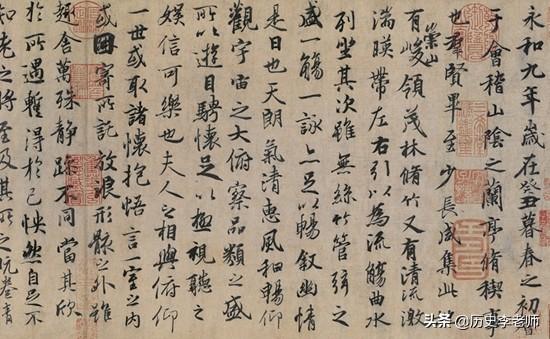 永和九年歲在癸丑暮春之初會
于會稽山陰之蘭亭脩稧事
也羣賢畢至少長咸集此
有崇山峻領茂林脩竹又有清流激
湍暎帶左右引以為流觴曲水
列坐其次雖無絲竹管弦之
盛一觴一詠亦足以暢敘幽情
是日也天朗氣清惠風和暢仰
觀宇宙之大俯察品類之盛
所以遊目騁懷足以極視聽之
娛信可樂也夫人之相與俯仰
一世或取諸懷抱悟言一室之內
或因寄所託放浪形骸之外雖
趣舍萬殊靜躁不同當其欣
於所遇暫得於己怏然自足不
知老之將至及其所之既惓情
头条 @历史李老师